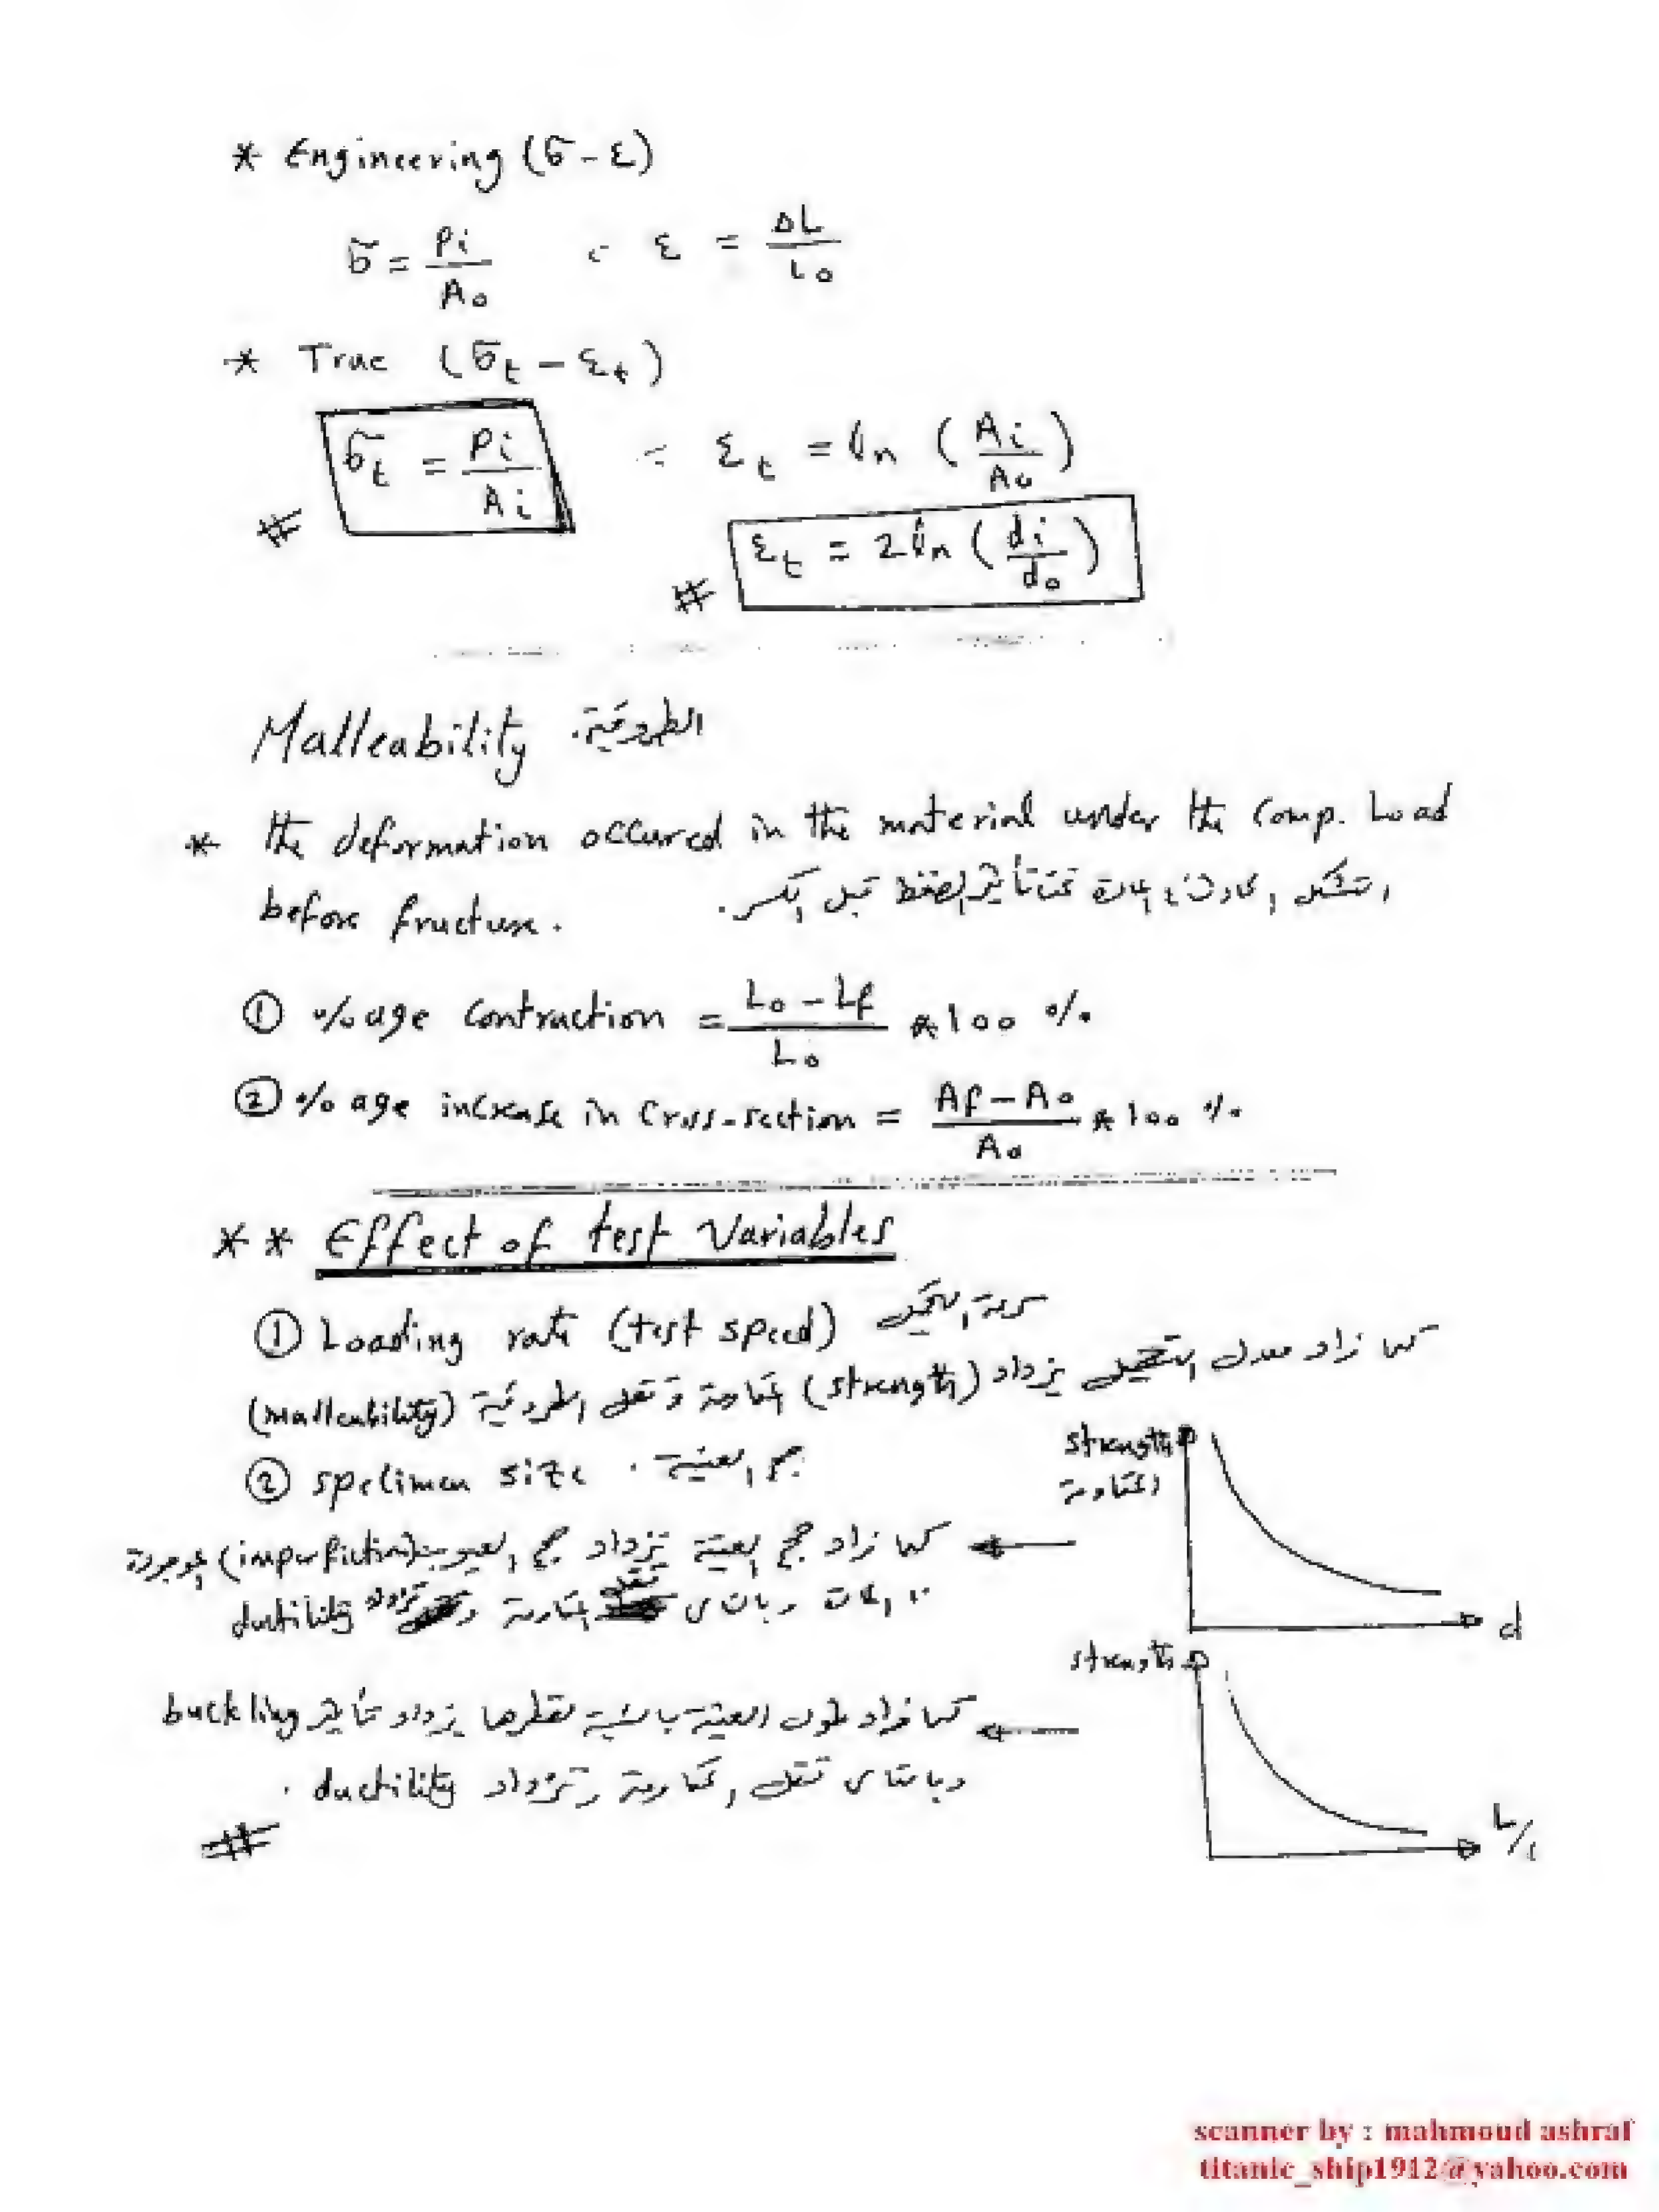 * Engineering (σ - ε)
σ = Pi / A₀ ، ε = ΔL / L₀
* True (σt - εt)
σt = Pi / Ai ، εt = ln (Ai / A₀)
# εt = 2 ln (di / d₀)
#
Malleability الطروقية.
* the deformation occured in the material under the comp. Load
before fructure. التشكل الحادث في المادة تحت تأثير الضغط قبل الكسر.
① %age contraction = (L₀ - Lf) / L₀ * 100 %
② %age increase in cross-section = (Af - A₀) / A₀ * 100 %
** Effect of test Variables
① Loading rate (test speed) سرعة التحميل
كلما زاد معدل التحميل يزداد (strength) المقاومة و تقل الطروقية (malleability)
② spelimen size . حجم العينة
strength
المقاومة
d
كلما زاد حجم العينة تزداد حجم العيوب (imperfiction) الموجودة
وبالتالى تقل المقاومة وتزداد ductility
strength
L/
كلما زاد طول العينة بالنسبة لقطرها يزداد تأثير buckling
وبالتالى تقل المقاومة وتزداد ductility .
#
scanner by : mahmoud ashraf
titanic_ship1912@yahoo.com